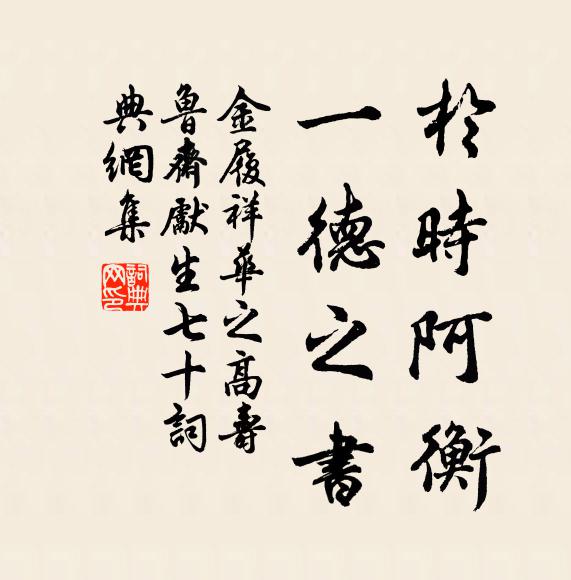 於時阿衡
一德之書
金履祥華之高壽
魯齋獻生七十詞
典網集
詞典網印